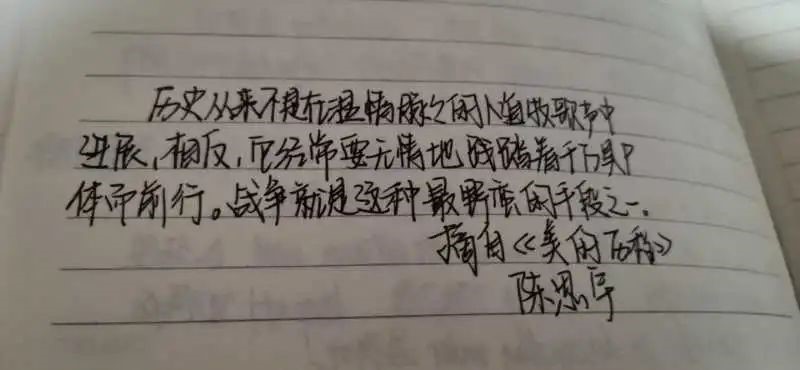 历史从来不是在温情脉脉的人道牧歌声中
进展，相反，它经常要无情地践踏着千万具尸
体而前行。战争就是这种最野蛮的手段之一。
摘自《美的历程》
陈思